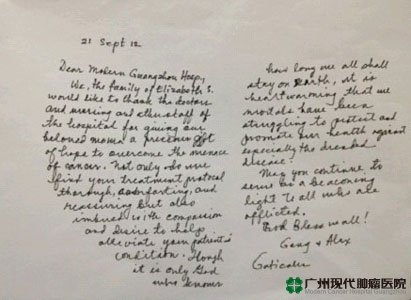 21 Sept 12
Dear Modern Guangzhou Hosp.,
We, the family of Elizabeth S.
would like to thank the doctors
and nursing and other staff of
the hospital for giving our
beloved mama a precious gift
of hope to overcome the menace
of cancer. Not only do we
find your treatment protocal
thorough, comforting, and
reassuring but also
imbued with compassion
and desire to help
alleviate your patient's
condition. Though
it is only God
who knows
how long we all shall
stay on Earth, it is
heartwarming that we
mortals have been
struggling to protect and
promote our health against
especially the dreaded
disease!
May you continue to
serve as a beaconing
light to all who are
afflicted.
God Bless us all!
Gong & Alex
广州现代肿瘤医院
Modern Cancer Hospital Guangzhou